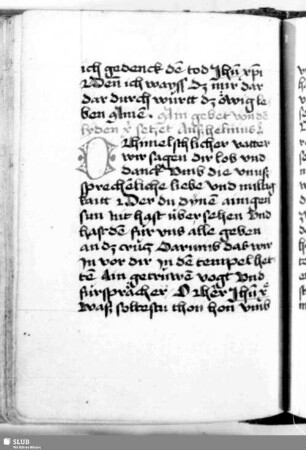 ich gedenck dē tod Jhū xp̄i
Wen̄ ich wayss dz mir dar
dar durch württ dz ewig le
ben Amē. Ain gebet von dē
lyden x̄ setzet Anshelmus
O Hhimelschlicher vatter
wir sagen dir lob vnd
danck vmb die vnus
sprechenliche liebe vnd miltig
kaitt Der du dynen ainigen
sun nit hast übersehen Vnd
hast den für vns alle geben
an dz crütz Darumb das wir
In vor dir In dem tempel het
tē Ain getrüwen vogt Vnd
fürsprächer O her Jhū x̄
Was soltestu thon hon vmb
SLUB